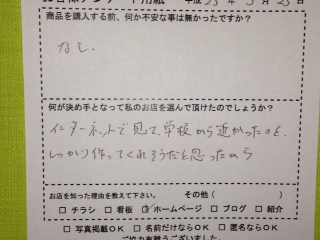 お客様アンケート用紙 平成23年3月23日
商品を購入する前、何か不安な事は無かったですか？
なし.
何が決め手となって私のお店を選んで頂けたのでしょうか？
インターネットで見て、学校から近かったのと、
しっかり作ってくれそうだと思ったから
お店を知った理由を教えて下さい。 その他（ ）
□ チラシ □ 看板 ☑ ホームページ □ ブログ □ 紹介
□ 写真掲載ＯＫ □ 名前だけならＯＫ □ 匿名ならＯＫ
ご協力有難うございました。